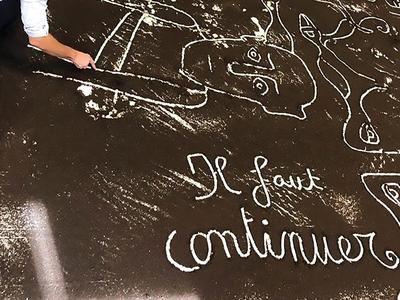 Il faut
continuer